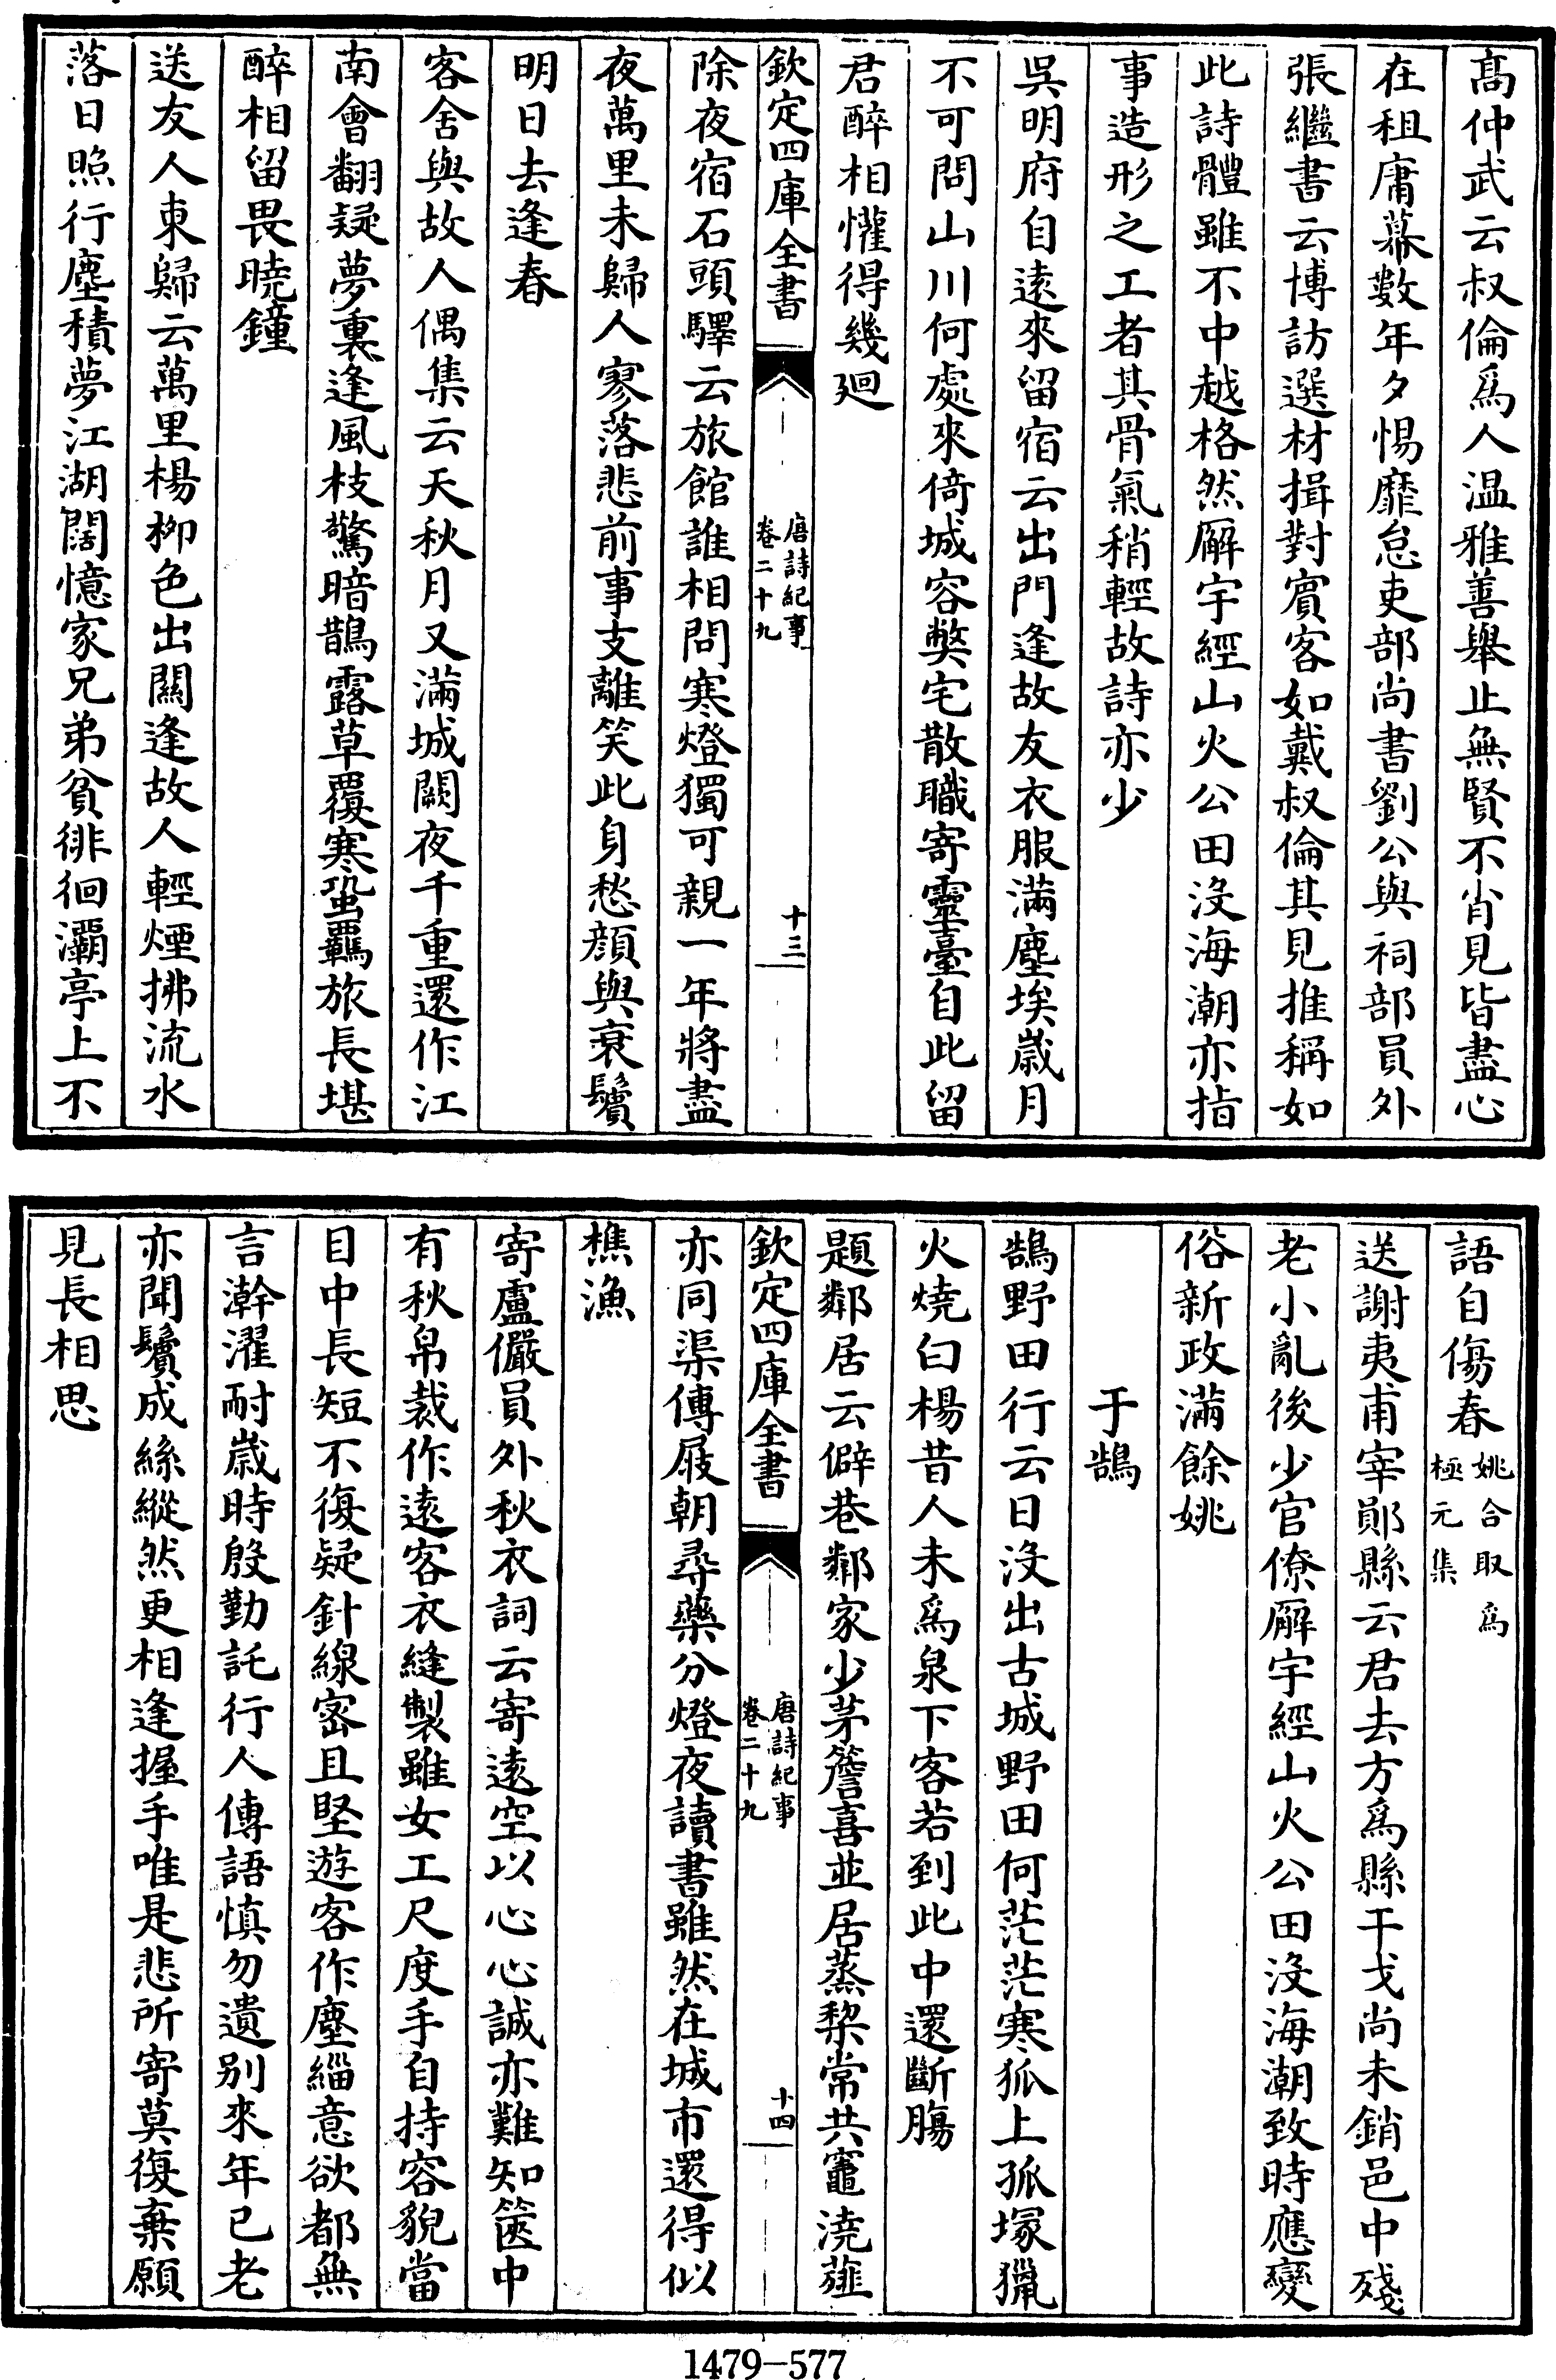 髙仲武云叔倫爲人温雅善舉止無賢不肖見皆盡心
在租庸幕數年夕惕靡怠吏部尚書劉公與祠部員外
張繼書云博訪選材揖對賓客如戴叔倫其見推稱如
此詩體雖不中越格然廨宇經山火公田沒海潮亦指
事造形之工者其骨氣稍輕故詩亦少
吳明府自逺來留宿云出門逢故友衣服滿塵埃嵗月
不可問山川何處來倚城容獘宅散職寄靈臺自此留
君醉相懽得幾廻
欽定四庫全書
唐詩紀事
卷二十九
十三
除夜宿石頭驛云旅館誰相問寒燈獨可親一年將盡
夜萬里未歸人寥落悲前事支離笑此身愁顔與衰鬢
明日去逢春
客舍與故人偶集云天秋月又滿城闕夜千重還作江
南會翻疑夢裏逢風枝驚暗鵲露草覆寒蛩羈旅長堪
醉相留畏曉鐘
送友人東歸云萬里楊柳色出闗逢故人輕煙拂流水
落日照行塵積夢江湖闊憶家兄弟貧徘徊灞亭上不
語自傷春
姚合取爲
極元集
送謝夷甫宰鄖縣云君去方爲縣干戈尚未銷邑中殘
老小亂後少官僚廨宇經山火公田沒海潮致時應變
俗新政滿餘姚
于鵠
鵠野田行云日沒出古城野田何茫茫寒狐上孤塚獵
火燒白楊昔人未爲泉下客若到此中還斷膓
題鄰居云僻巷鄰家少茅簷喜並居蒸棃常共竈澆薤
欽定四庫全書
唐詩紀事
卷二十九
十四
亦同渠傳屐朝尋藥分燈夜讀書雖然在城市還得似
樵漁
寄盧儼員外秋衣詞云寄逺空以心心誠亦難知篋中
有秋帛裁作逺客衣縫製雖女工尺度手自持容貌當
目中長短不復疑針線密且堅遊客作塵緇意欲都無
言澣濯耐嵗時殷勤託行人傳語慎勿遺别來年已老
亦聞鬢成絲縱然更相逢握手唯是悲所寄莫復棄願
見長相思
1479-577